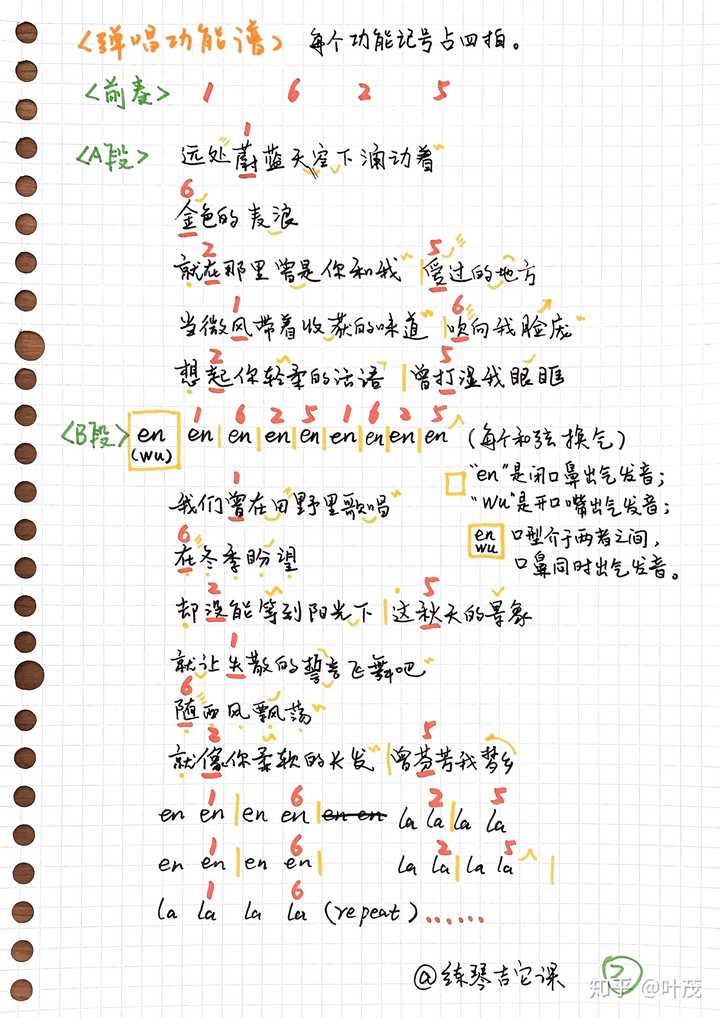 <弹唱功能谱> 每个功能记号占四拍。
<前奏> 1 6 2 5
1
<A段> 远处蔚蓝天空下涌动着
6
金色的麦浪
2 5
就在那里曾是你和我 | 爱过的地方
1 6
当微风带着收获的味道 | 吹向我脸庞
2 5
想起你轻柔的话语 | 曾打湿我眼眶
1 6 2 5 1 6 2 5
<B段> en (wu) en | en | en | en | en | en | en | en (每个和弦换气)
"en"是闭口鼻出气发音;
"wu"是开口嘴出气发音;
en wu 口型介于两者之间,
口鼻同时出气发音。
1
我们曾在田野里歌唱
6
在冬季盼望
2 5
却没能等到阳光下 | 这秋天的景象
1
就让失散的誓言飞舞吧
6
随西风飘荡
2 5
就像你柔软的长发 | 曾芬芳我梦乡
1 6 2 5
en en | en en | en en la la | la la
1 6 2 5
en en | en en | la la | la la |
1 6
la la la la (repeat)......
@练琴吉它课
2
知乎 @叶茂